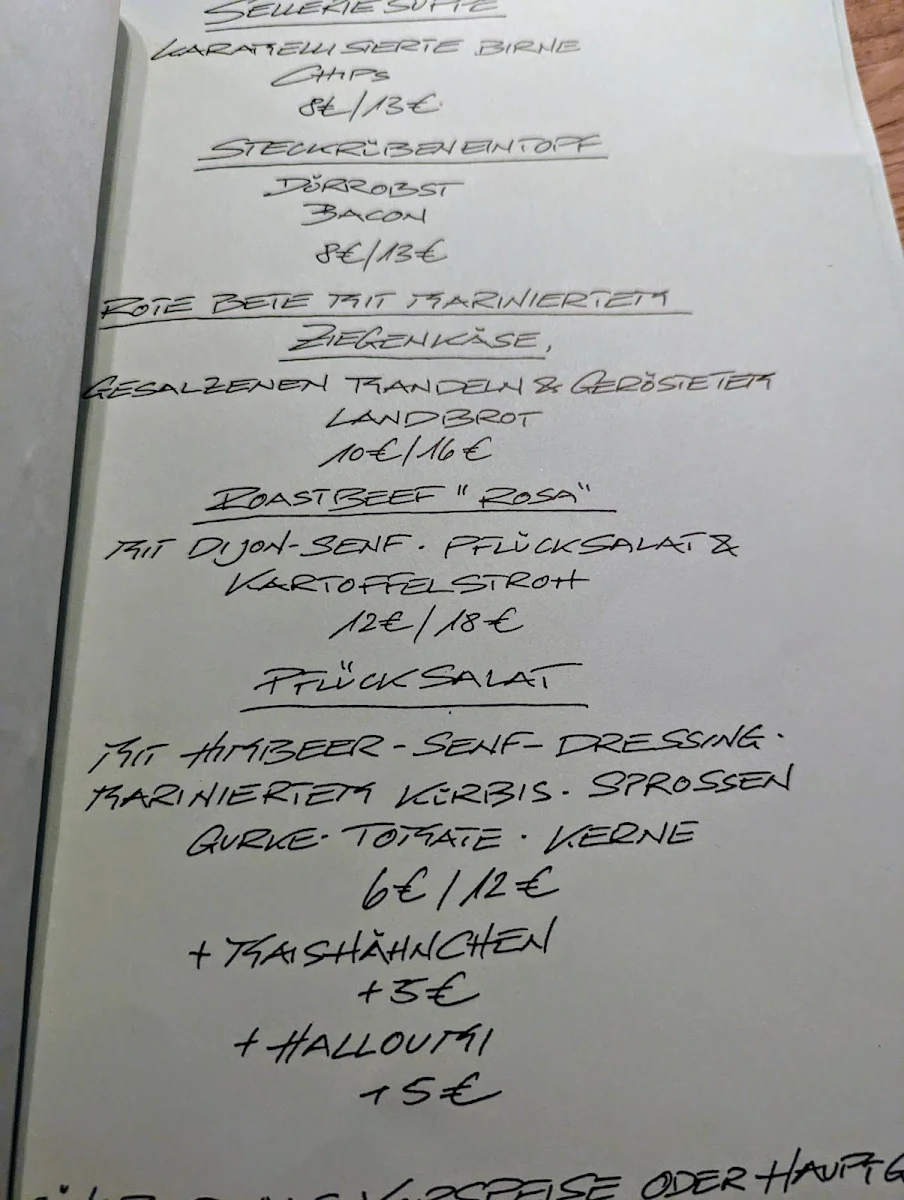 SELLERIE SUPPE
KARAMELLISIERTE BIRNE
CHIPS
8€/13€
STECKRÜBENEINTOPF
DÖRROBST
BACON
8€/13€
ROTE BETE MIT MARINIERTEM
ZIEGENKÄSE,
GESALZENEN MANDELN & GERÖSTETEM
LANDBROT
10€/16€
ROASTBEEF "ROSA"
MIT DIJON-SENF · PFLÜCKSALAT &
KARTOFFELSTROH
12€/18€
PFLÜCKSALAT
MIT HIMBEER-SENF-DRESSING ·
MARINIERTEM KÜRBIS · SPROSSEN
GURKE · TOMATE · KERNE
6€/12€
+ MAISHÄHNCHEN
+5€
+ HALLOUMI
+5€
VORSPEISE ODER HAUPTG